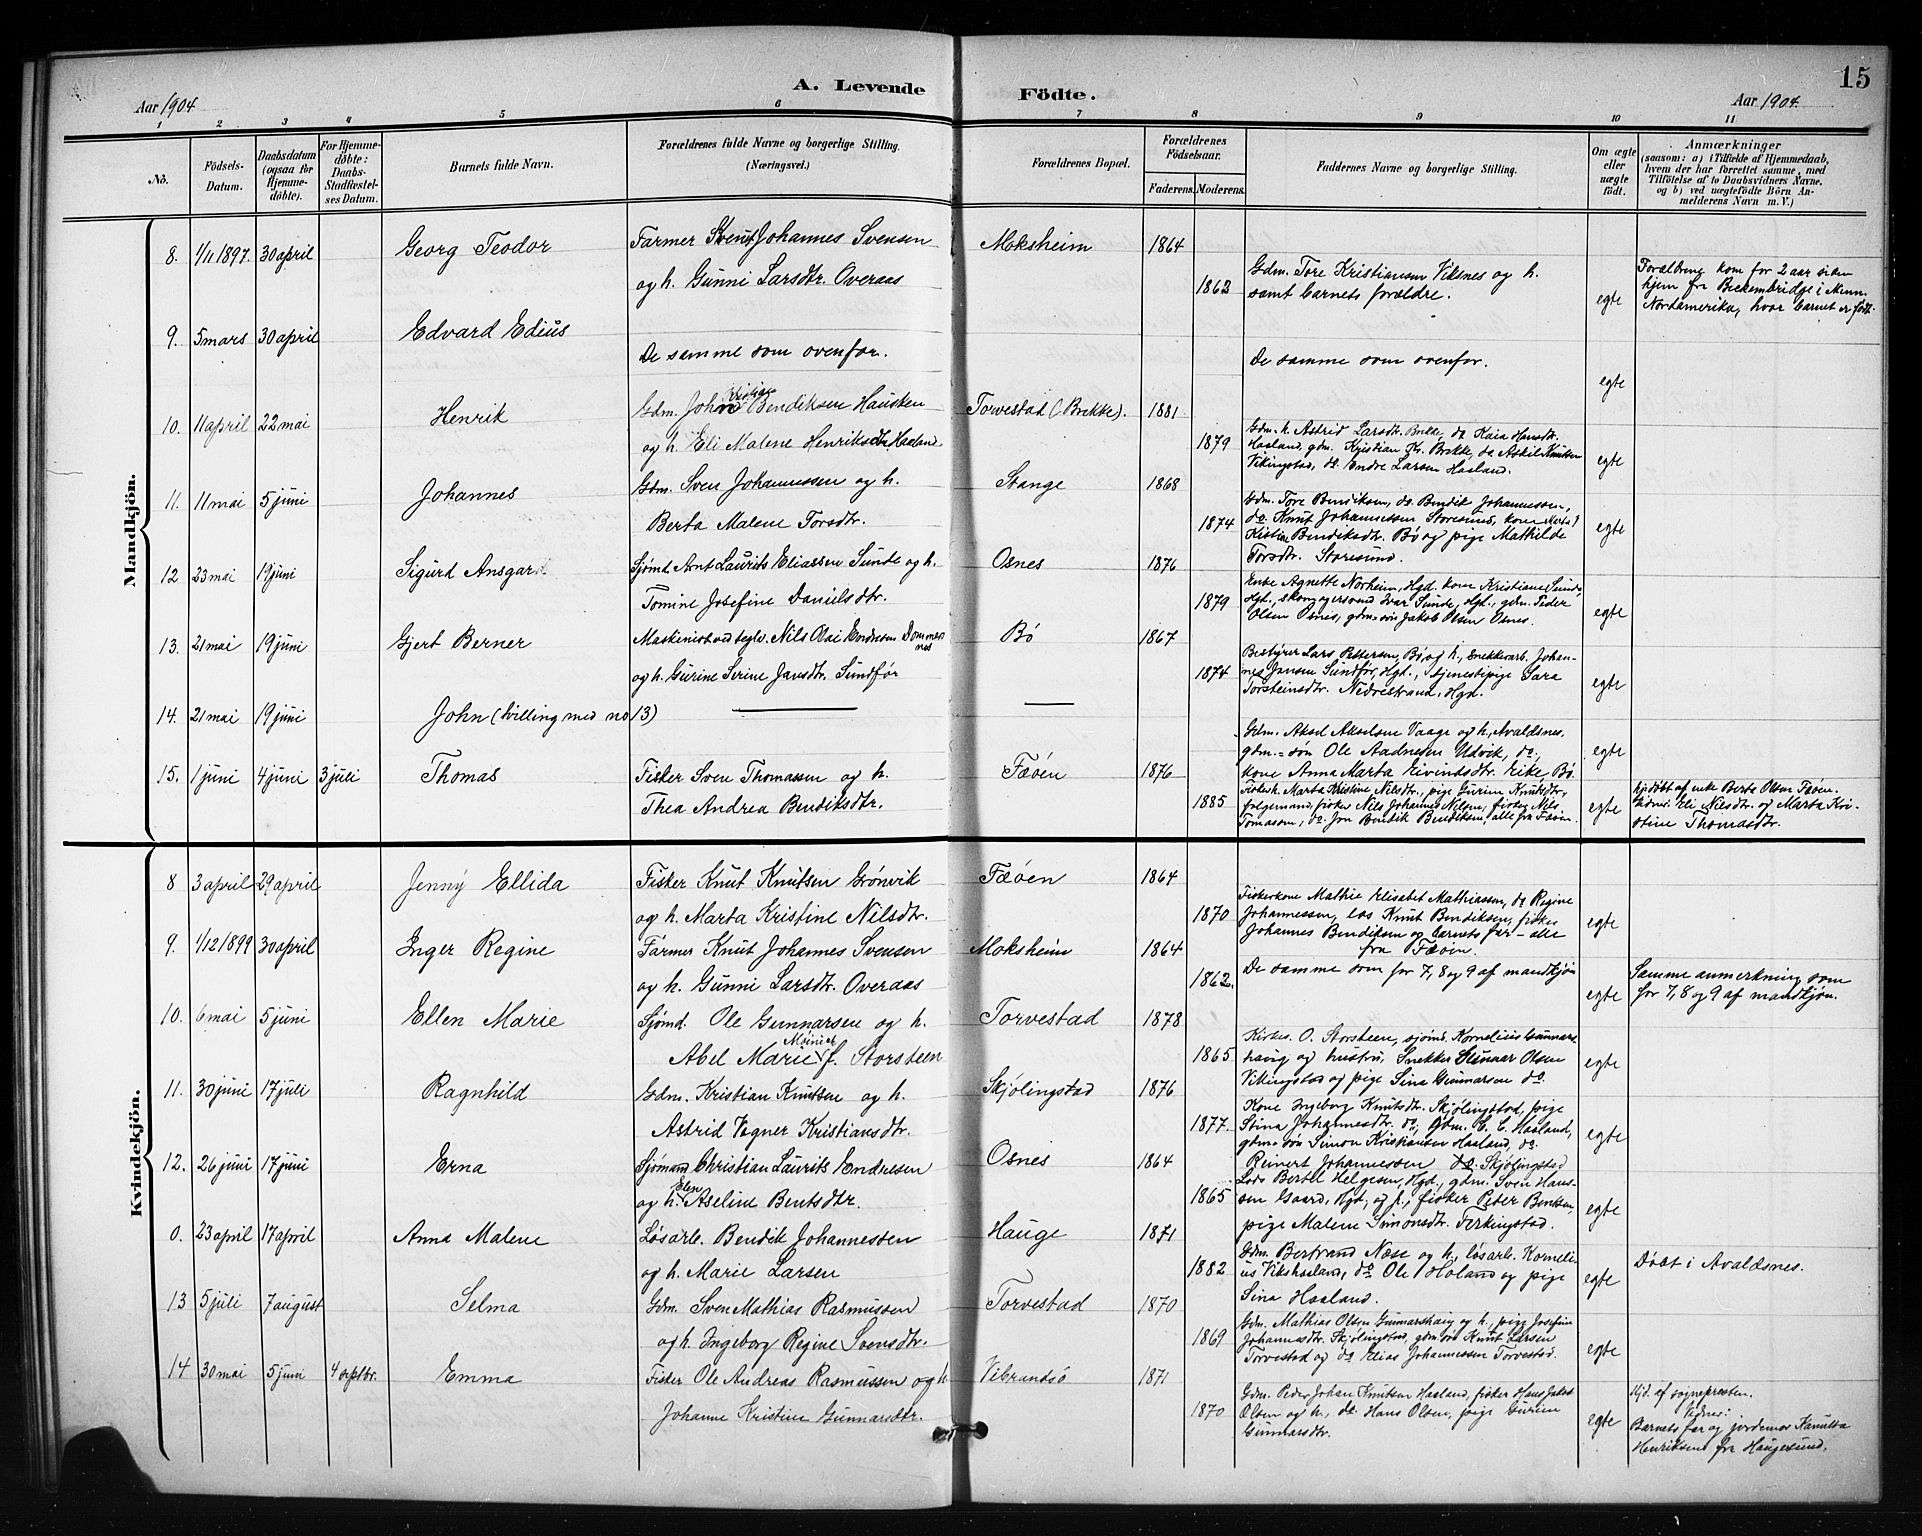 A. Levende Födte.
15
Aar 1904. Aar 1904.
1 2 3 4 5 6 7 8 9 10 11
No. Födsels-Datum. Daabsdatum (ogsaa for Hjemmedöbte). For Hjemmedöbte: Daabs-Stadfæstelses Datum. Barnets fulde Navn. Forældrenes fulde Navne og borgerlige Stilling. (Næringsvei.) Forældrenes Bopæl. Forældrenes Födselsaar. Faderens. Moderens. Faddernes Navne og borgerlige Stilling. Om ægte eller uægte födt. Anmærkninger (saasom: a) i Tilfælde af Hjemmedaab, hvem der har forrettet samme, med Tilföielse af to Daabsvidners Navne, og b) ved uegtefödte Börn Anmelderens Navn m. V.)
Mandkjön.
8. 1/11 1897. 30 april Georg Teodor Farmer Knut Johannes Svensen Moksheim 1864
og h. Gunni Larsdtr. Overaas 1862 Gdm. Tore Kristiansen Viksnes og h. samt barnets forældre. egte Forældrene kom for 2 aar siden
hjem fra Breckenbridge i Minn.
Nordamerika, hvor barnet er født.
9. 5 mars 30 april Edvard Edius
De samme som ovenfor. De samme som ovenfor. egte
10. 11 april 22 mai Henrik Gdm. John Kristian Bendiksen Hausken Torvestad (Brekke). 1881
og h. Eli Malene Henriksdtr. Haaland 1879 Gdm. h. Astrid Larsdtr. Brekke, do Kaia Hansdtr.
Haaland, gdm. Kristian Kr. Brekke, do Askil Knutsen
Vikingstad, do. Endre Larsen Haaland. egte
11. 11 mai 5 juni Johannes Gdm. Sven Johannessen og h. Stange 1868
Berta Malene Torsdtr. 1874 Gdm. Tore Bendiksen, do. Bendik Johannessen,
do Knut Johannessen Storesund, kone Berta
Kristine Bendiksdtr. Bø og pige Mathilde
Torsdtr. Storesund. egte
12 23 mai 19 juni Sigurd Ansgard Sjømd. Arnt Laurits Eliassen Sunde og h. Osnes 1876
Tomine Josefine Danielsdtr. 1879 Enke Agnette Norheim, Hgd. kone Kristiane Sunde
Hgd., skomagersvend Ivar Sunde, Hgd., gdm. Peder
Olsen Osnes, gdm-søn Jakob Olsen Osnes. egte
13. 21 mai 19 juni Gjert Berner Maskinist ved teglv. Nils Olai Endresen Dommersnes Bø 1867
og h. Gurine Serine Jansdtr. Sundfør 1874 Bestyrer Lars Pettersen, Bø og h., Snekkerarb. Johannes
Jansen Sundfør, Hgd., tjenestepige Sara
Torsteinsdtr. Nedrestrand, Hgd. egte
14. 21 mai 19 juni John (tvilling med no 13)
Gdm. Aksel Akselsen Vaage og h., Avaldsnes,
gdm.-søn Ole Aadnesen Udvik, do,
kone Anna Marta Eivindsdtr. Eike, Bø. egte
15. 1 juni 4 juni 3 juli Thomas Fisker Sven Thomassen og h. Fæøen 1876
Thea Andrea Bendiksdtr. 1885 Fiskerh. Marta Kristine Nilsdtr., pige Gurine Knutsdtr.,
følgemand, fisker Nils Johannes Nilsen, fisker Nils
Tomassen, do. Jon Bendik Bendiksen, alle fra Fæøen. egte hjdøbt af enke Berta Olsen Fæøen.
Vidner: Eli Nilsdtr. og Marta Kristine Thomasdtr.
Kvindekjön.
8 3 april 29 april Jenny Ellida Fisker Knut Knutsen Grønvik Fæøen 1864
og h. Marta Kristine Nilsdtr. 1870 Fiskerkone Mathie Elisabet Mathiassen, do Regine
Johannessen, los Knut Bendiksen, fisker
Johannes Bendiksen og barnets far – alle
fra Fæøen. egte
9. 1/12 1899 30 april Inger Regine Farmer Knut Johannes Svensen Moksheim 1864
og h. Gunni Larsdtr. Overaas 1862. De samme som for 7, 8 og 9 af mandkjøn egte Samme anmerkning som
for 7, 8 og 9 af mandkjøn.
10. 6 mai 5 juni Ellen Marie Sjømd. Ole Gunnarsen og h. Torvestad 1878
Abel Marie f. Storsteen 1865 Kirkes. O. Storsteen, sjømd. Kornelius Gunnarshaug
og hustru, Snekker Gunnar Olsen
Vikingstad og pige Sina Gunnarsen do. egte
11. 30 juni 17 juli Ragnhild Gdm. Kristian Knutsen og h. Skjølingstad 1876
Astrid Vegner Kristiansdtr. 1877. Kone Ingeborg Knutsdtr. Skjølingstad, pige
Stina Johannesdtr. do, Gdm. C. C. Haaland,
gdm-søn Simon Kristiansen Haaland, do.
Reinert Johannessen Skjølingstad egte
12. 26 juni 17 juni Erna Sjømand Christian Laurits Endresen Osnes 1864
og h. Elen Aseline Bentsdtr. 1865 Lods Bertel Helgesen, Hgd., gdm. Sven Hanssen
Gaard, Hgd, og f., fisker Peder Bentsen,
pige Malene Simonsdtr. Ferkingstad. egte
0. 23 april 17 april Anna Malene Løsarb. Bendik Johannessen Hauge 1871
og h. Marie Larsen 1882 Gdm. Bertrand Næse og h., løsarb. Kornelius
Vikshaaland, do Ole Haland og pige
Sina Haaland. egte Døbt i Avaldsnes.
13 5 juli 7 august Selma Gdm. Sven Mathias Rasmussen Torvestad 1870
og h. Ingeborg Regine Svensdtr. 1869 Gdm. Mathias Olsen Gunnarshaug og h., pige Josefine
Johannesdtr. Skjølingstad, gdmsøn Knut Larsen
Torvestad og do Elias Johannessen Torvestad. egte
14 30 mai 5 juni 4 septbr. Emma Fisker Ole Andreas Rasmussen og h Vibrandsø 1871
Johanne Kristine Gunnarsdtr. 1870 Gdm. Peder Johan Knutsen Haaland, fisker Hans Jakob
Olsen og h., do. Hans Olsen, pige Gurine
Gunnarsdtr. egte Hjd. af sognepresten.
Vidner:
Barnets far og jordemor Kanutta
Henriksen fra Haugesund.